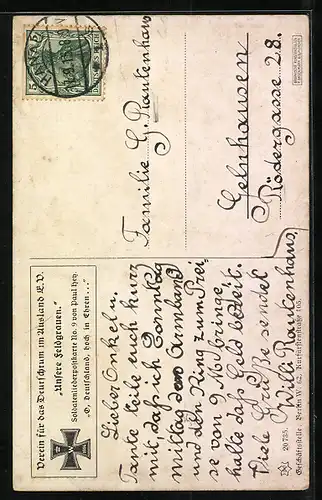 Verein für das Deutschtum im Ausland E.V.
"Unsere Feldgrauen."
Soldatenliederpostkarte No. 9 von Paul Hey.
"O, Deutschland, hoch in Ehren..."
Lieber Onkel u.
Tante teile euch kurz
mit, daß ich Sonntag
mittag das Armband
und den Ring zum Prei
se von 9 M bringe
halte daß Geld bereit.
Viele Grüße sendet
Willi Rautenhaus
HANAU
5
Familie G. Rautenhaus
Gelnhausen
Rödergasse 28.
20735.
Geschäftsstelle: Berlin W 62, Kurfürstenstraße 105.